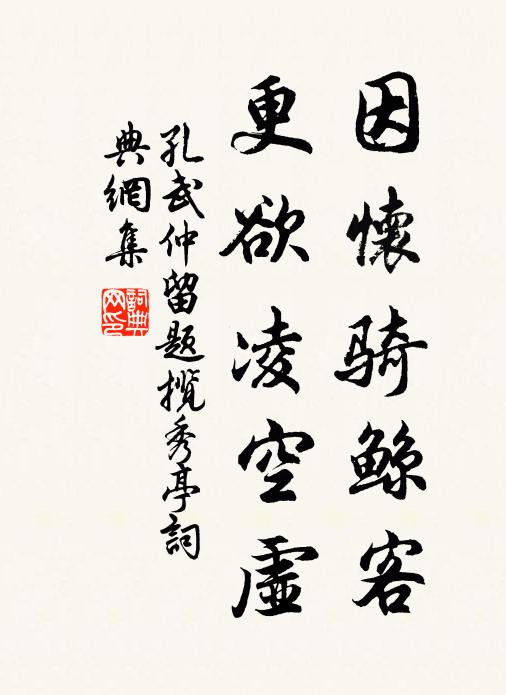 因懷騎鯨客
更欲凌空虛
孔武仲留題攬秀亭詞
典網集
詞典
网印